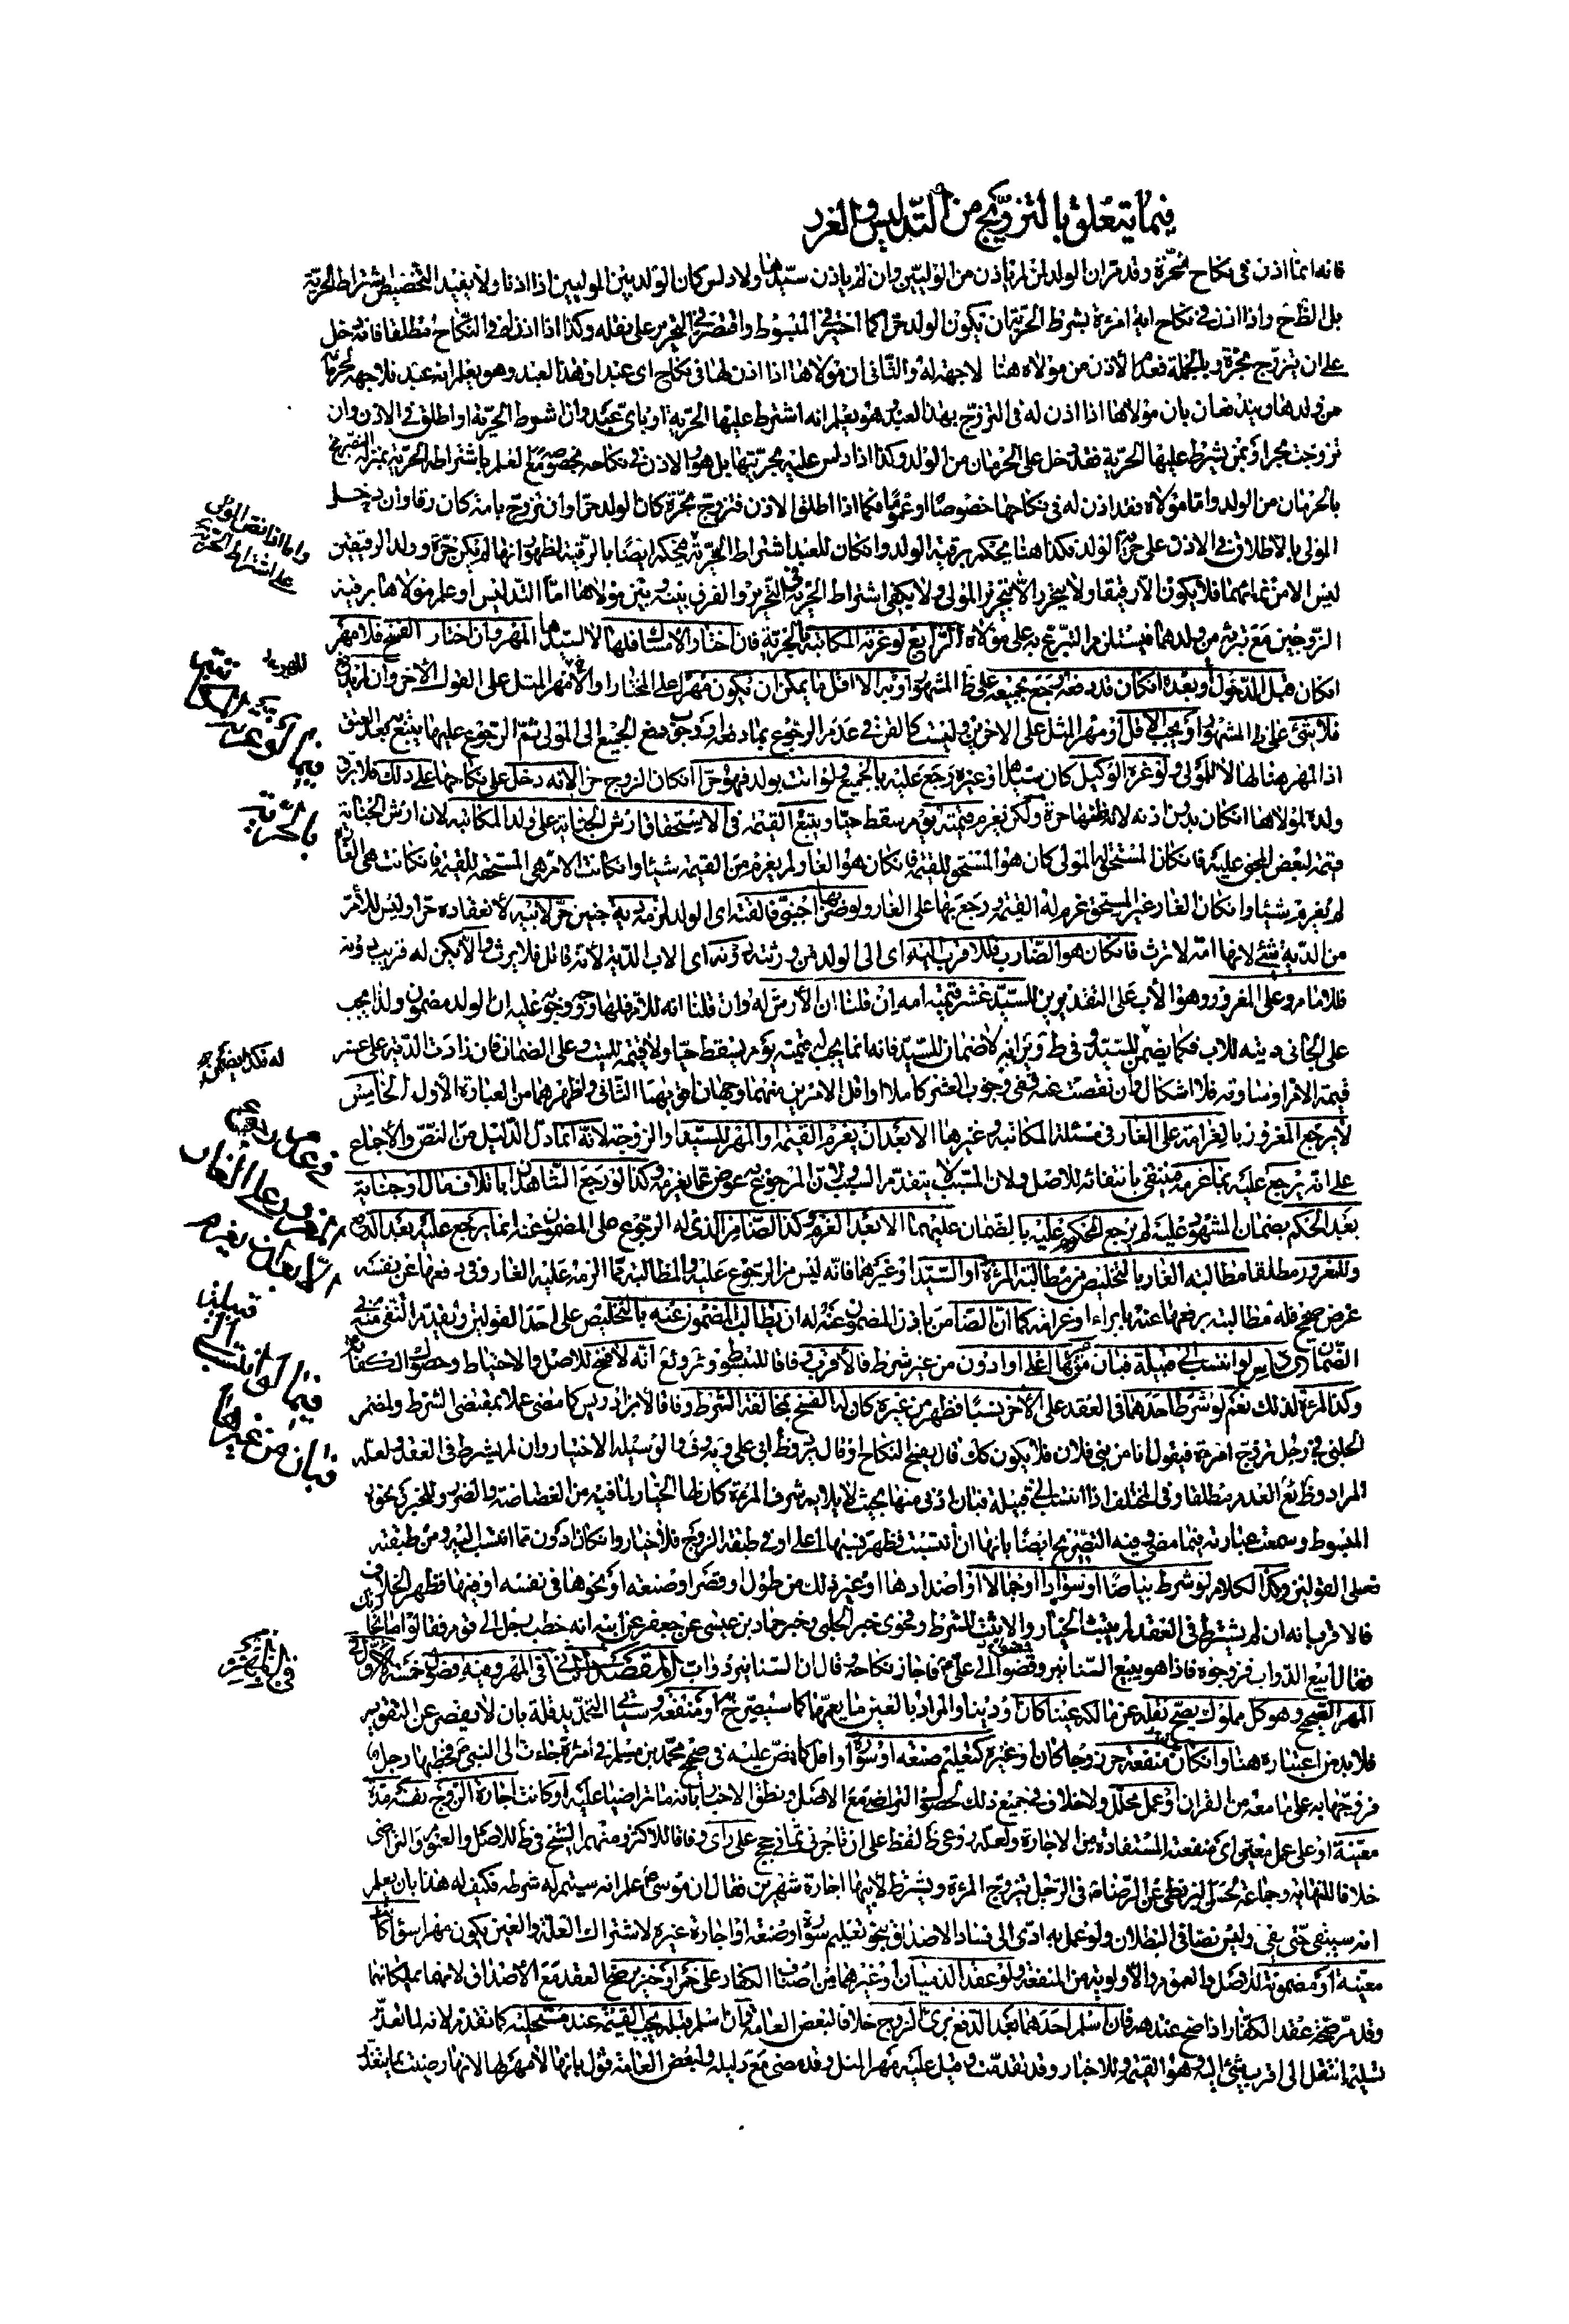 فيما يتعلق بالتزويج من التدليس والغرر
فانه انما اذن في نكاح الحرة وقد مر ان الولد لمن لم ياذن من الوليين وان لم ياذن سيدها ولا دلس كان الولد بين الموليين اذا اذنا ولا يفيد التخصيص اشتراط الحرية
واذا اذن في نكاح اية امرءة بشرط الحرية ان يكون الولد حرا كما اختير في المبسوط واقتصر في التحرير على نقله وكذا اذا اذن له في النكاح مطلقا فانه دخل
على ان يتزوج بحرة وبالجملة فعدم الاذن من مولاه هنا لا جهة له والثاني ان مولاها اذا اذن لها في نكاح اى عبد او هذا العبد وهو يعلم انه عبد فلا جهة لحرمانه
من ولدها ويندفعان بان مولاها اذا اذن له في التزوج بهذا العبد وهو يعلم انه اشترط عليها الحرية او باى عبد وان شرط الحرية او اطلق في الاذن وان
تزوجت بحر او بمن يشترط عليها الحرية فقد دخل على الحرمان من الولد وكذا اذا دلس عليه بحريتها بل هو الاذن في نكاحه بخصوصه مع العلم باشتراطه الحرية بمنزلة التصريح
بالحرمان من الولد واما مولاه فقد اذن له في نكاحها خصوصا او عموما فكما اذا اطلق الاذن فتزوج بحرة كان الولد حرا وان تزوج بامة كان رقا وان دخل
المولى بالاطلاق في الاذن على حرية الولد فكذا هنا يحكم برقية الولد وان كان للعبد اشتراط الحرية محكم ايضا بالرقية لظهور انها لم تكن حرة وولد الرقيقين
ليس الا من نمائهما فلا يكون الا رقيقا ولا يتحرر الا بتحرير المولى ولا يكفي اشتراط الحرية في التحرير والفرق بينه وبين مولاها اما التدليس او علم مولاها برقية
الزوجين مع تبرئه من ولدهما فيستلزم التبرع به على مولاه الرابع لو غرته المكاتبة بالحرية فان اختار الامساك فلها لا لسيدها المهر وان اختار الفسخ فلا مهر
ان كان قبل الدخول وبعده ان كان قد دفعه رجع بجميعه على ظ المشهور او به الا اقل ما يمكن ان يكون مهرا على المختار او الا مهر المثل على القول الاخر وان لم يدفع
فلا شئ على ظ المشهور او يجب الاقل او مهر المثل على الاخرين وليست كالقن في عدم الرجوع بما دفعه او وجوب دفع الجميع الى المولى ثم الرجوع عليها يتبع به بعد العتق
اذ المهر هنا لها لا للمولى ولو غره الوكيل كان سيدها او غيره رجع عليه بالجميع ولو اتت بولد فهو حر ان كان الزوج حرا لانه دخل على نكاحها على ذلك فلا يرق
ولده لمولاها ان كان بدون اذنه لانه ظنها حرة ولكن يغرم قيمته يوم سقط حيا ويتبع القيمة في الاستحقاق ارش الجناية على ولد المكاتبة لان ارش الجناية
قيمة لبعض المجني عليه فان كان المستحق له المولى كان هو المستحق للقيمة فان كان هو الغار لم يغرم من القيمة شيئا وان كانت الام هي المستحقة للقيمة فان كانت هي الغارة
لم يغرم شيئا وان كان الغار غير المستحق غرم له القيمة ورجع بها على الغار ولو ضربها اجنبي فالقته اى الولد لزمه دية جنين حر لابيه لانعقاده حرا وليس للام
من الدية شئ لانها امة لا ترث فان كان هو الضارب فللاقرب اليه اى الى الولد من ورثته دونه اى الاب الدية لانه قاتل فلا يرث والا يكن له قريب دونه
فللامام وعلى المغرور وهو الاب على التقديرين للسيد عشر قيمة امه ان قلنا ان الارش له وان قلنا انه للام فلها ووجه وجوبه عليه ان الولد مضمون ولذا يجب
على الجاني ديته للاب فكما يضمن للسيد وفي ط وير انه لا ضمان للسيد فانه انما يجب له قيمته يوم يسقط حيا ولا قيمة للميت وعلى الضمان فان زادت الدية على عشر
قيمة الام او ساوته فلا اشكال وان نقصت عنه ففي وجوب العشر كاملا او اقل الامرين منهما وجهان اقربهما الثاني واظهرهما من العبارة الاول الخامس
لا يرجع المغرور بالغرامة على الغار في مسئلة المكاتبة وغيرها الا بعد ان يغرم القيمة او المهر للسيد او الزوجة لانه انما دل الدليل من النص والاجماع
على انه يرجع عليه بما غرمه فينتفى بانتفائه للاصل ولان المسبب لا يتقدم السبب ولان المرجوع به عوض عما يغرمه وكذا لو رجع الشاهدان باتلاف مال او جناية
بعد الحكم بضمان المشهود عليه لم يرجع المحكوم عليه بالضمان عليهما الا بعد الغرم وكذا الضامن الذى له الرجوع على المضمون عنه انما يرجع عليه بعد الدفع
وللمغرور مطلقا مطالبة الغار بالتخليص من مطالبة المرءة او السيد او غيرهما فانه ليس من الرجوع عليه والمطالبة بما الزمه عليه الغار وفي دفعها عن نفسه
غرض صحيح فله مطالبته برفعها عنه بابراء او غرامة كما ان الضامن باذن المضمون عنه له ان يطالب المضمون عنه بالتخليص على احد القولين
الضمان السادس لو انتسب الى قبيلة فبان من غيرها اعلى او ادون من غير شرط فالاقرب وفاقا للمبسوط انه لا فسخ للاصل والاحتياط وحصول الكفاءة
وكذا المرءة لذلك نعم لو شرط احدهما في العقد على الاخر نسبا فظهر من غيره كان له الفسخ لمخالفة الشرط وفاقا لابن ادريس كما مضى عملا بمقتضى الشرط ولمضمر
الحلبي في رجل تزوج امرءة فيقول انا من بني فلان فلا يكون كك قال يفسخ النكاح او قال يرد وظ ابي على والوسيلة الاختيار وان لم يشترط في العقد ولعله
المراد وظ العدم مطلقا وفي المختلف اذا انتسب الى قبيلة فبان ادنى منها بحيث لا يلايم شرف المرءة كان لها الخيار لما فيه من الغضاضة والضرر وللخبر ونحوه
المبسوط وسمعت عبارته فيما مضى وفيه التصريح ايضا بانها ان انتسبت فظهر نسبها اعلى او في طبقة الزوج فلا خيار وان كان ادون مما انتسب اليه ومن طبقته
فعلى القولين وكذا الكلام لو شرط بياضا او سوادا او جمالا او اضدادها او غير ذلك من طول او قصر او صنعة او نحوها في نفسه او فيها فظهر الخلاف
فالاقرب انه ان لم يشترط في العقد لم يثبت الخيار والا يثبت للشرط وفحوى خبر الحلبي وخبر حماد بن عيسى عن جعفر عن ابيه انه خطب رجل الى قوم فقالوا ما تجارتك
فقال ابيع الدواب فزوجوه فاذا هو يبيع السنانير فمضوا الى علي ع فاجاز نكاحه وقال ان السنانير دواب المقصد الثاني في المهر وفيه فصول خمسة الاول في
المهر الصحيح وهو كل مملوك يصح نقله عن مالكه عينا كان او دينا والمراد بالعين ما يعمهما كما سيصرح به او منفعة
فلا بد من اعتباره هنا وان كان منفعة حر زوجا كان او غيره كتعليم صنعة او سورة او اقل كما نص عليه في صحيح محمد بن مسلم في امرءة جاءت الى النبي ص فخطبها رجل
فزوجها به على ما معه من القران او عمل محلل ولا خلاف في جميع ذلك لحصول التراضي مع الاصل ونطق الاخبار بانه ما تراضيا عليه او كانت اجارة الزوج نفسه مدة
معينة او على عمل معين اى منفعته المستفادة من الاجارة على راى وفاقا للاكثر ومنهم الشيخ في ظ للاصل والعموم والتراضي
خلافا للنهاية وجماعة لحسن البزنطي عن الرضا ع في الرجل يتزوج المرءة ويشترط لابيها اجارة شهرين فقال ان موسى ع علم انه سيتم له شرطه فكيف لهذا بان يعلم
انه سيبقى حتى يفي وليس نصا في البطلان ولو عمل به ادى الى فساد الاصداق بنحو تعليم سورة او صنعة او اجارة غيره لاشتراك العلة والعين يكون مهرا سواء كانت
معينة او مضمونة للاصل والعموم والاولوية من المنفعة ولو عقد الذميان او غيرهما من اصناف الكفار على خمر او خنزير صح العقد مع الاصداق لانهما يملكانهما
وقد مر صحة عقد الكفار اذا صح عندهم فان اسلم احدهما بعد الدفع برئ الزوج خلافا لبعض العامة وان اسلم قبله يجب القيمة عند مستحليه كما تقدم لانه لما تعذر
تسليمه انتقل الى اقرب شئ اليه وهو القيمة وللاخبار وقد تقدمت وقيل عليه مهر المثل وقد مضى مع دليله ولبعض العامة قول بانها لا مهر لها لانها رضيت بما يتعذر
واما اذا نقص المولى
على اشتراط الحرية
فيما لو غرته
بالحرية
له فكذا يضمن
في عدم رجوع
المغرور على الغار
الا بعد ان يغرم
فيما لو انتسب الى
قبيلة
فبان من غيرها
في المهر